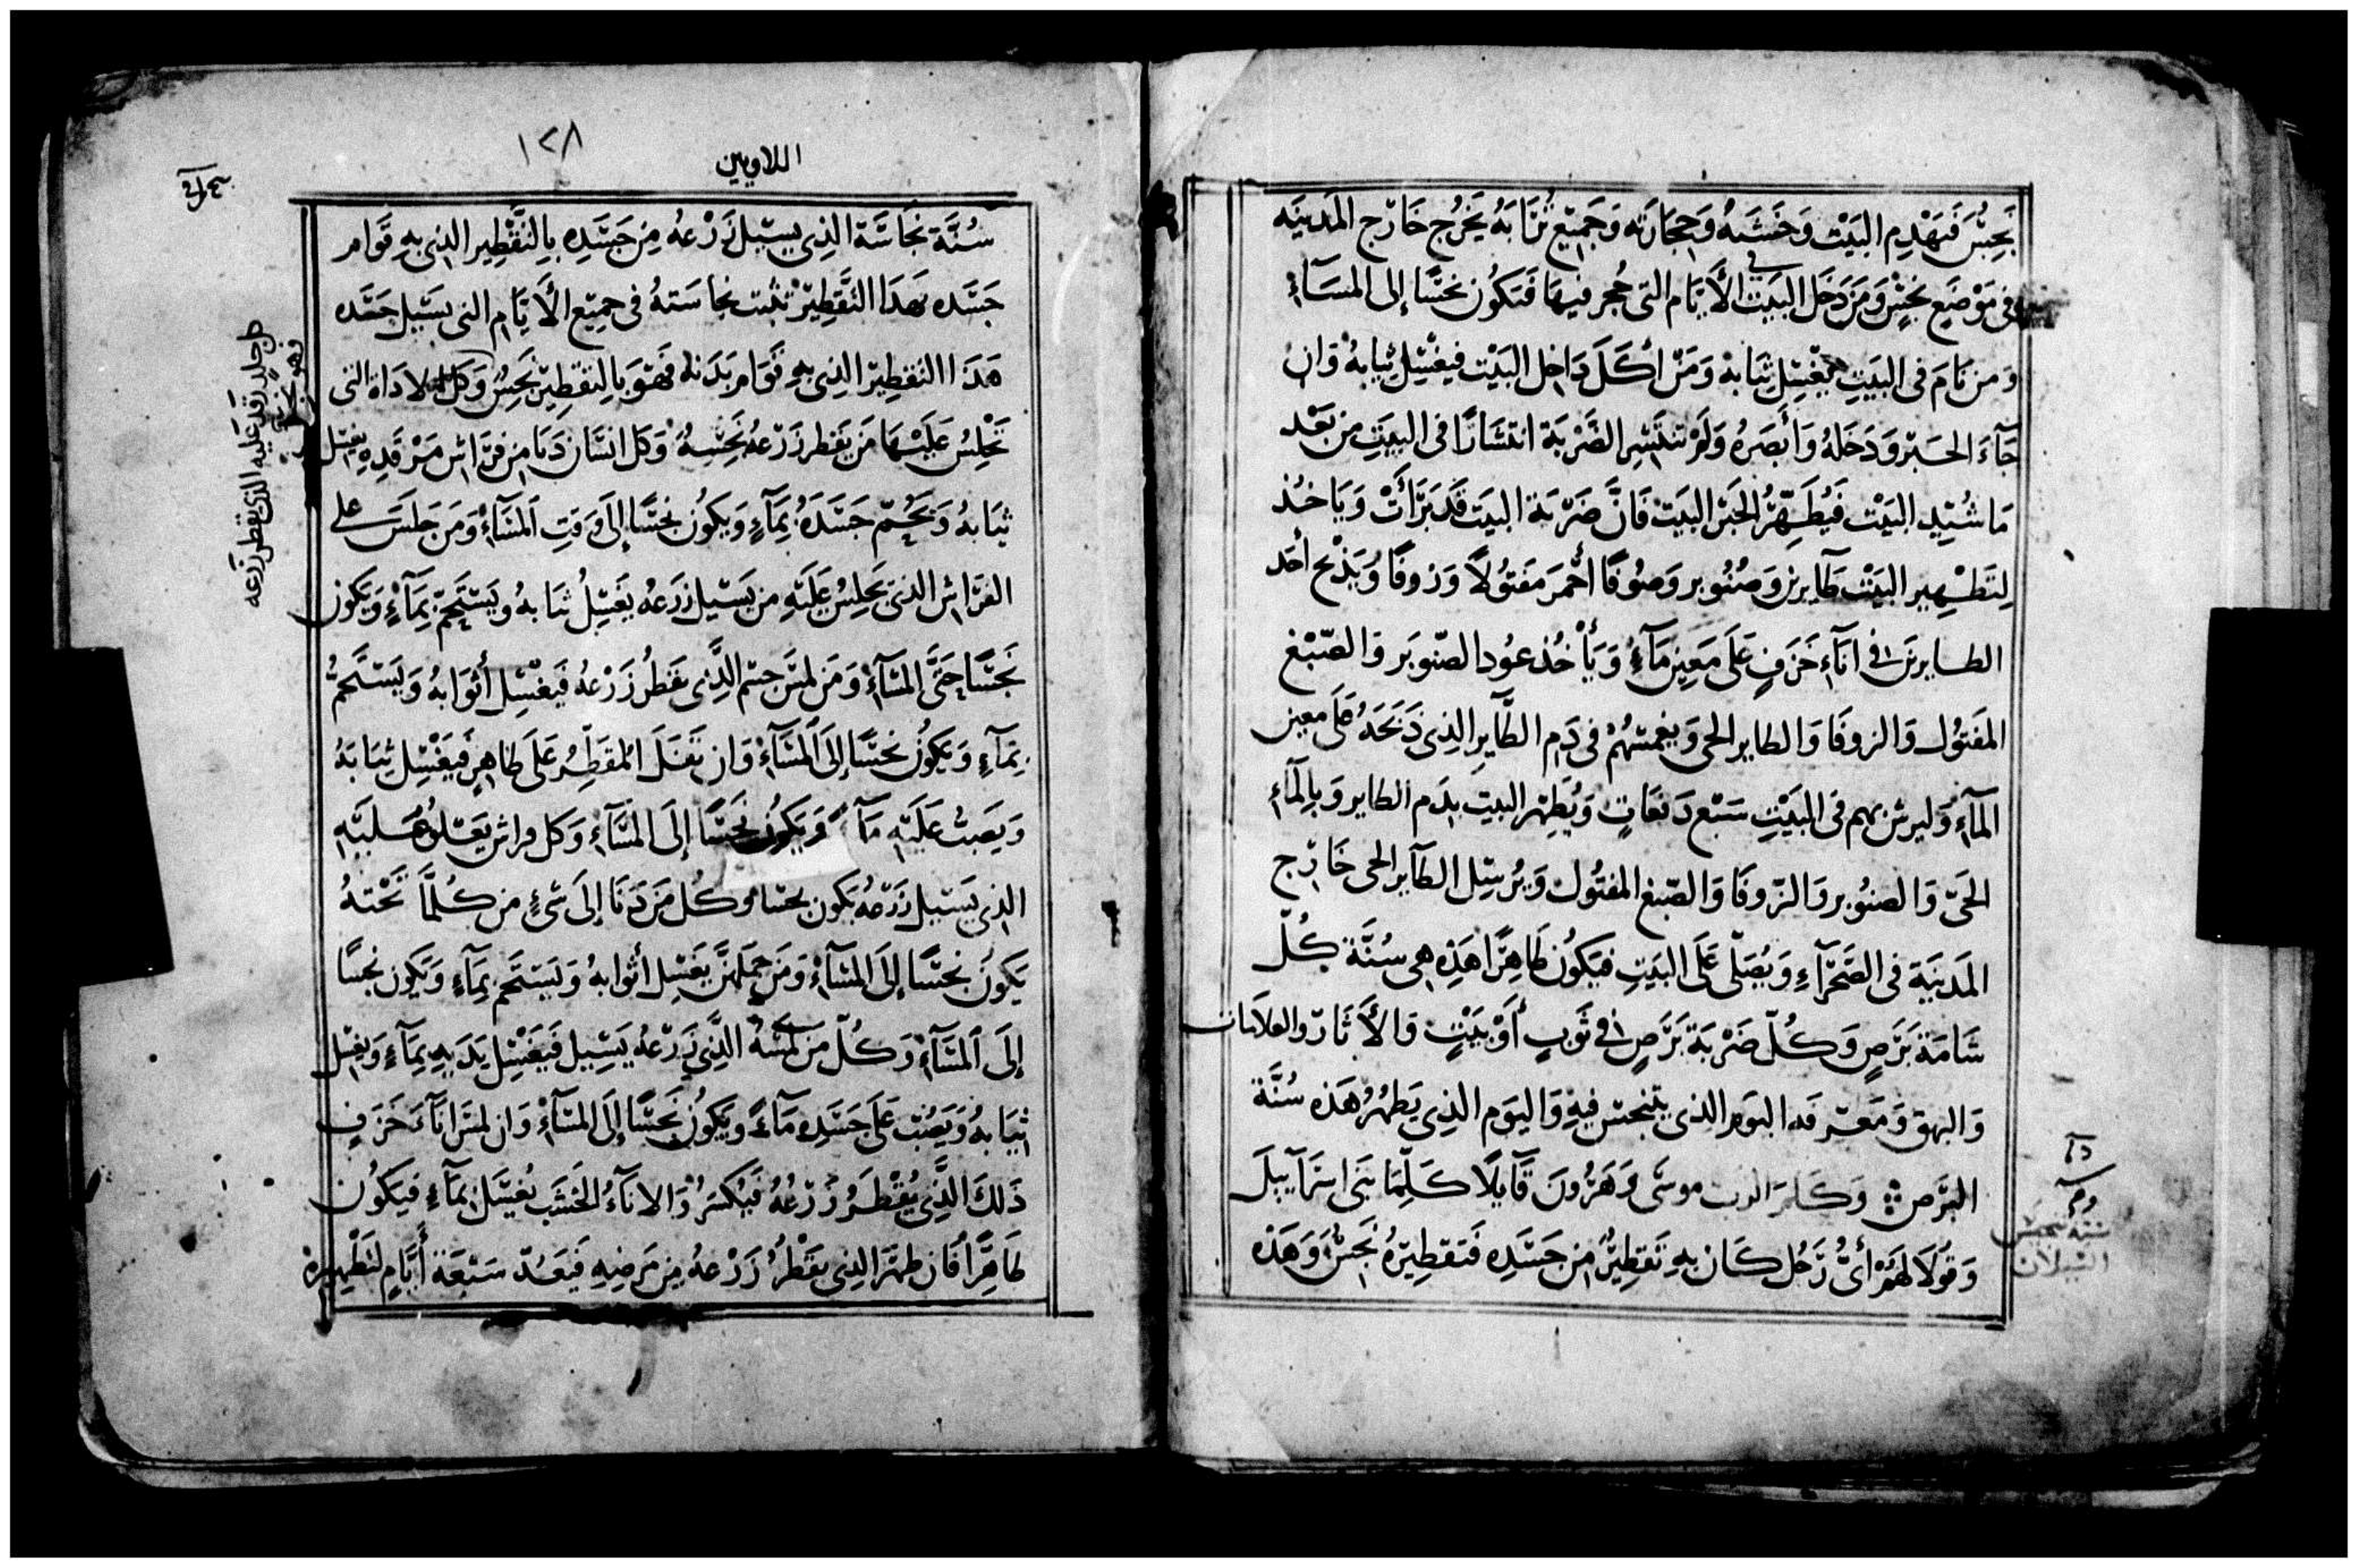 نَجِسٌ فَيَهْدِم البَيْت وَخَشَبهُ وَحِجَارَته وَجَمِيْع تُرَابَهُ يَخْرُج خَارِج المَدينَه
فى مَوْضَعِ نجِسٍ وَمَن دَخَل البَيت في الأَيَّام التى حُجر فيهَا فَيَكوُن نجسًا إلى المسَآءِ
وَمن نَامَ فى البَيتِ يغْسِل ثيَابهُ وَمَن أكَلَ دَاخِل البَيْت فيغْسِل ثيابهُ وَان
جَآءَ الحَبرْ وَدَخَلهُ وَأَبصَرهُ وَلَمْ تنتَشِر الضَّرْبَة انتشَارًا فى البيَتِ من بَعْد
مَا شُيّدِ البَيْت فَيُطَهِّرُ الحَبر البَيَت فَانَّ ضَرْبَة البَيَت قَد بَرَأَتْ وَيَاخُذ
لِتَطْهِير البَيْت طَايرين وَصُنُوبر وَصُوفًا أحْمَر مَفتُولاً وَزوفًا وَيَذْبح أحَد
الطايرين فى انَآءِ خَزَفٍ عَلَى مَعِين مَآءٍ وَيَأخُذ عوُد الصّنوبَر وَالصّبْغ
المَفتوُل وَالزوفَا وَالطاير الحى وَيغمسهُمْ فى دَمِ الطَّاير الذِى ذَبَحَهُ عَلَى معين
المآءِ وَليرش بهم فى البَيْتِ سَبْع دَفعَاتٍ وَيُطهِر البيتَ بِدَم الطاير وَبِالمَآءِ
الحَىّ وَالصنوُبر وَالزّوفَا وَالصّبغ المفتوُل وَيُرسِل الطَّآير الحى خَارِج
المَدينَة فى الصَّحْرَآءِ وَيُصَلّى عَلَى البَيَتِ فيَكوُن طَاهِرًا هَذِهِ هى سُنَّة كُلّ
شَامَة بَرَصٍ وَكُلّ ضَرْبَة بَرَصٍ فى ثَوبٍ أوْ بَيْتٍ وَالأَثَار والعلاَمات
وَالبهق وَمَعْرفة اليَوَم الذى يتنجس فيهِ وَاليَوم الذِى يَطهُرُ هَذه سُنَّة
البَرَص وَكَلم الرب موسَى وَهَرُونَ قَآيلًا كَلِّمَا بَنى اسْرَآييلَ
وَقوُلَا لَهُمْ أىُّ رَجُل كَان بهِ تقطِيْرُ مِن جَسَدِهِ فَتقطِيْرهُ نَجِسٌ وَهَذهِ
اللاويين
١٢٨
سُنَّة نَجَاسَة الذِى يسِيْل زَرْعهُ مِن جَسَدِهِ بِالتَّقْطِير الذى بهِ قوَامر
جَسَده بهَذَا التَّقطِيْر تثبت نجاسَتهُ فى جَمِيْع الأَيَّامِ التى يَسِيْل جَسَده
هَذَا التقطِير الذِى بهِ قوَامر بَدَنه فَهوَ بِالتقطِيْر نَجِسٌ وَكل الادَاة التى
تجْلِسُ عَلَيْهَا مَن يَقطر زَرْعهُ نَجِسه وَكل انسَان دَنَا مِن فرَاش مَرْقدِهِ يغسِل
ثيَابهُ وَيحمّ جَسَدَهُ بِمَآءٍ وَيكوُن نجسًا إلَى وَقتِ المسَآءِ وَمَن جَلسَ على
الفرَاش الذى يَجلِسُ عَلَيْهِ من يَسيل زَرَعهُ يَغسِلُ ثيَابهُ ويَسْتَحِمّ بِمَآءٍ وَيَكون
نَجسًا حَتَّى المسَآءِ وَمَن لمسَ جسْم الذِى يَقطُر زَرْعهُ فَيغْسِل أثْوَابهُ وَيَسْتَحمُّ
بِمَآءٍ وَيَكوُن نجسًا إلَى المسَآءِ وَان تفَلَ المُقَطِّرُ عَلَى طاهِرٍ فَيَغْسِل ثيَابَهُ
وَيَصَبُّ عَلَيْهِ مَآءً وَيَكوُن نَجسًا إلَى المسَآءِ وَكل فراش يَعْلوُ عَليَهِ
الذِى يَسيل زَرْعهُ يَكون نجسًا وَكُل مَن دَنَا إلَى شىءٍ من كُلمَّا تَحْتهُ
يَكونَ نجسًا إلَى المسَآءِ وَمَن حَمَلهنَّ يَغسِل أثوابهُ وَيَستَحم بِمَآءٍ وَيَكون نجسًا
إلَى المسَآءِ وَكُلّ من لمسهُ الذِى زَرْعهُ يَسِيل فَيغْسِل يَدَيهِ بِمَآءٍ وَيغسِل
ثيَابهُ وَيَصُب عَلَى جَسَدِه مَآءً وَيَكوُن نَجِسًا إلَى المسَآءِ وَان لمسَ انَآءَ خَزَفٍ
ذَلكَ الذِى يُقْطرُ زَرْعُهُ فَيُكسَرُ وَالانَآءُ الخَشَب يُغسَل بمَآءِ فيَكوُن
طَاهِرًا فَان طهرَ الذِى يقْطُرُ زَرْعهُ مِن مَرَضِهِ فَيَعُدّ سَبْعَة أَيَّامٍ لتَطْهِيرهِ
جلد رَقد عَليه الذى يقطر زرعه